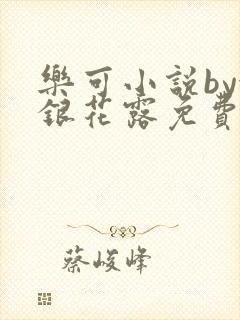 樂可小説by
銀花露免費
蔡峻峰